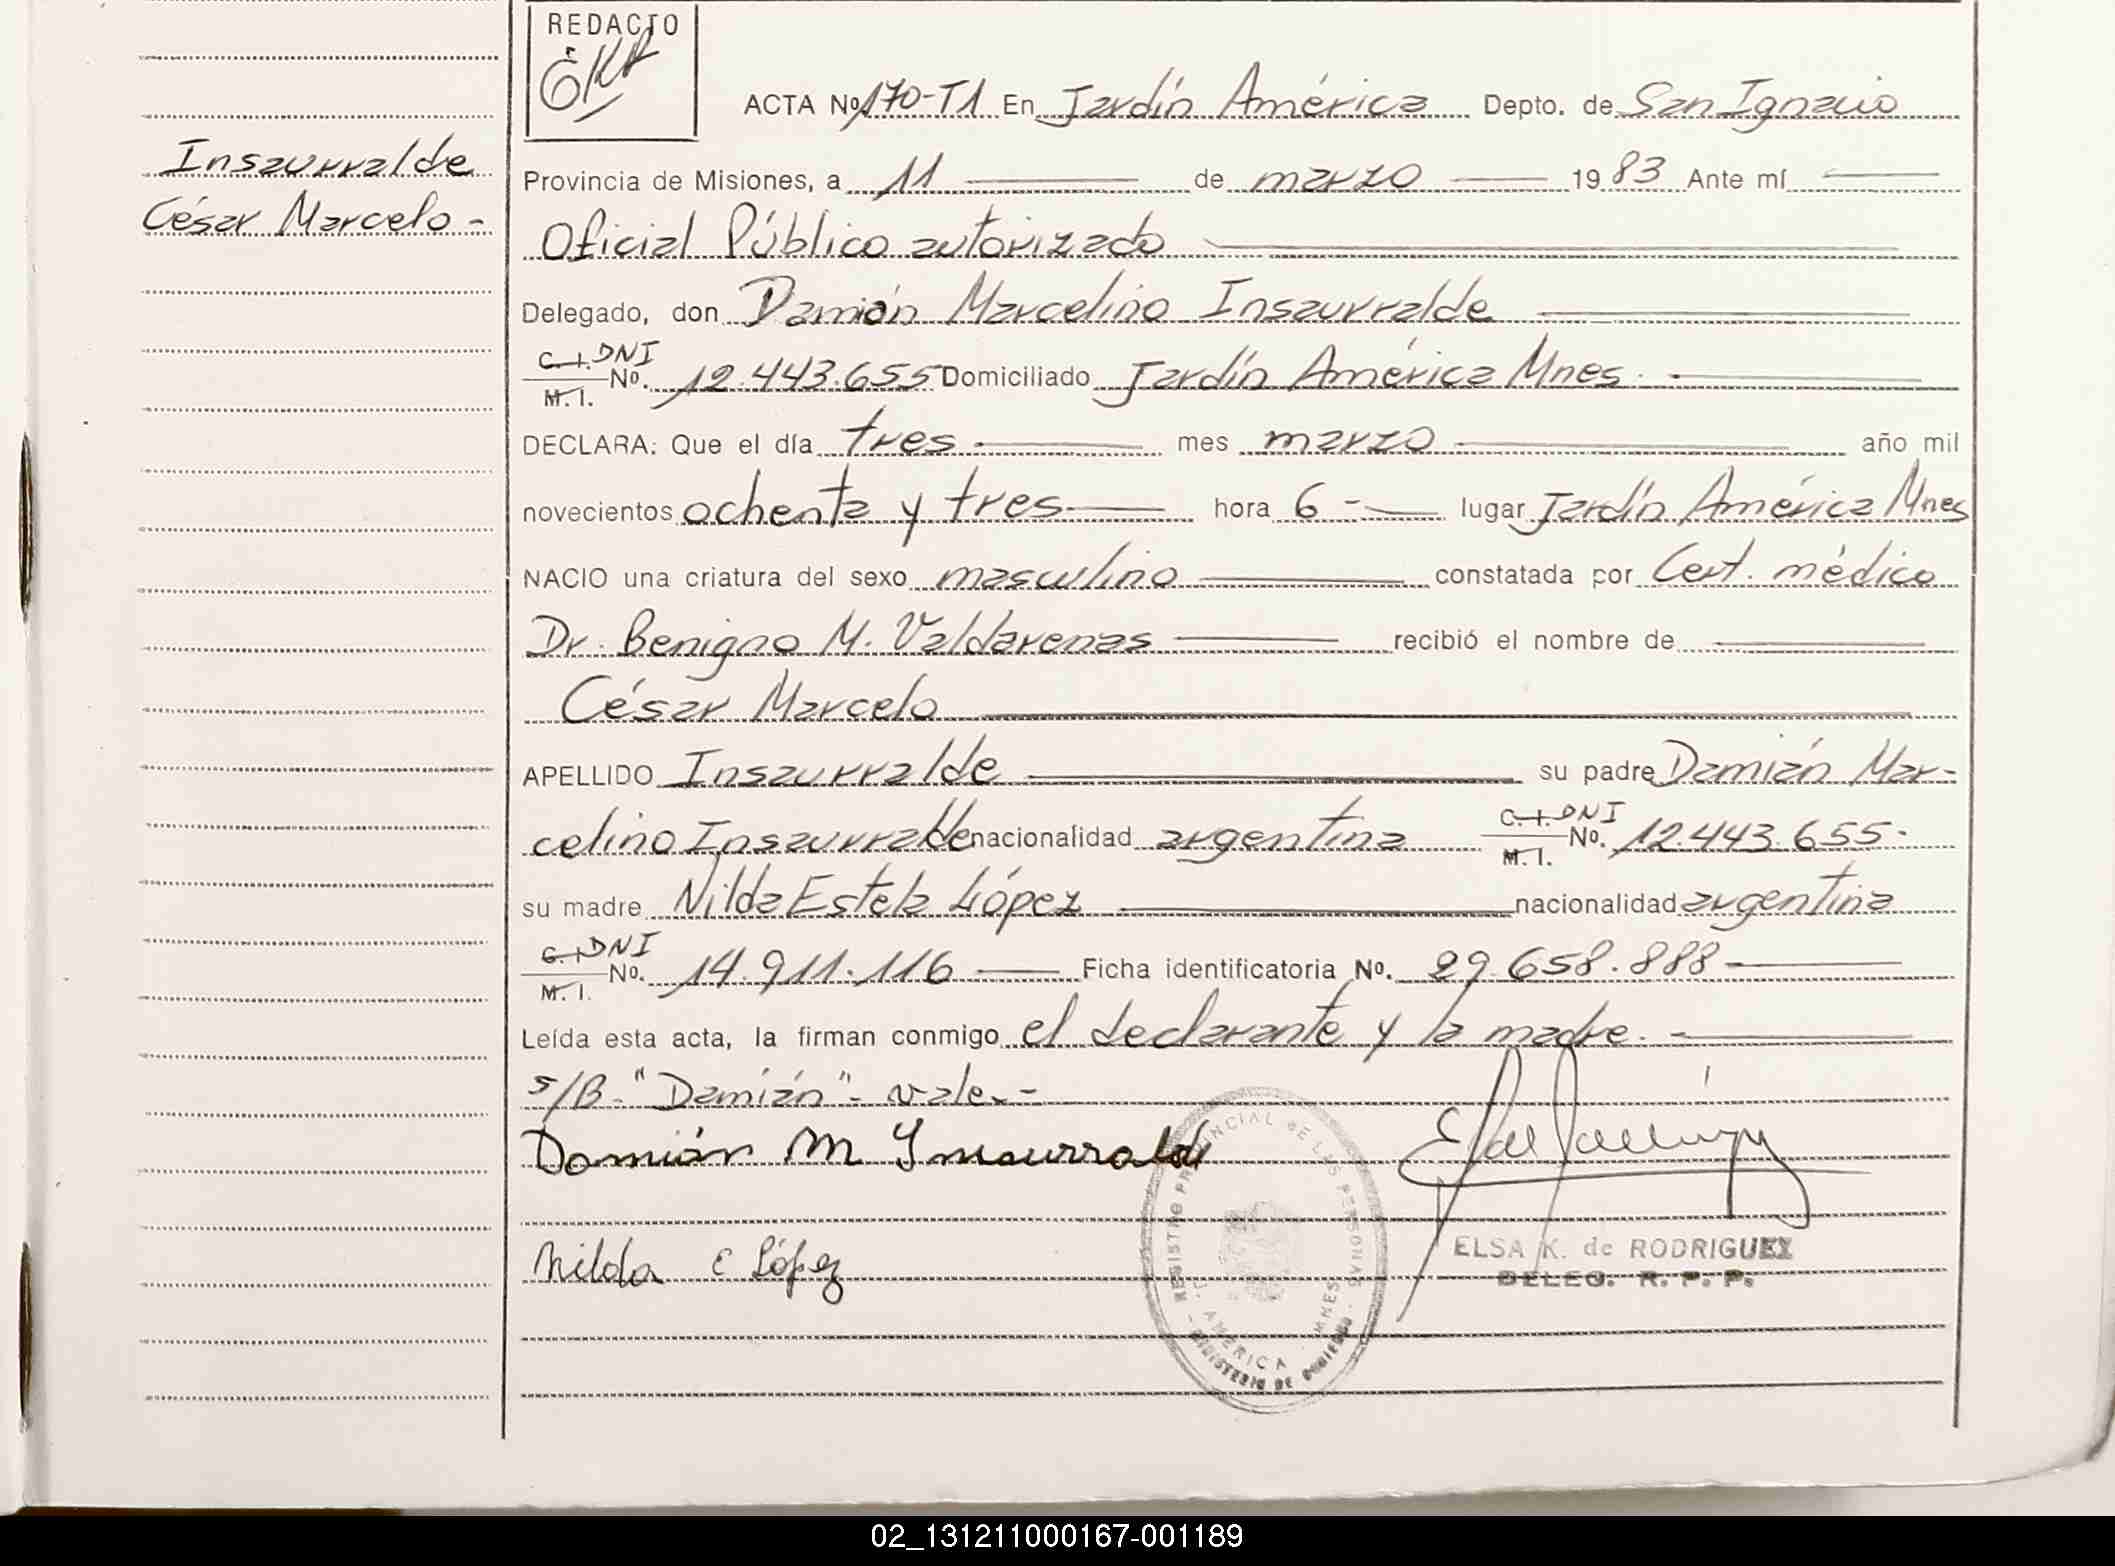 REDACTO
ACTA Nº 170-T1 En Jardín América Depto. de San Ignacio
Insaurralde
César Marcelo -
Provincia de Misiones, a 11 de marzo 1983 Ante mí
Oficial Público autorizado
Delegado, don Damián Marcelino Insaurralde
C.I. DNI
M.I. Nº. 12.443.655 Domiciliado Jardín América Mnes.
DECLARA: Que el día tres mes marzo año mil
novecientos ochenta y tres hora 6 - lugar Jardín América Mnes
NACIO una criatura del sexo masculino constatada por Cert. médico
Dr. Benigno M. Valdarenas recibió el nombre de
César Marcelo
APELLIDO Insaurralde su padre Damián Mar-
celino Insaurralde nacionalidad argentina C.I. DNI M.I. Nº. 12.443.655.
su madre Nilda Estela López nacionalidad argentina
C.I. DNI
M.I. Nº. 14.911.116 Ficha identificatoria Nº. 29.658.888
Leída esta acta, la firman conmigo el declarante y la madre. -
s/B. "Damián" - vale. -
Damián M Insaurralde
Nilda E López
REGISTRO PROVINCIAL DE LAS PERSONAS
J. AMERICA - MNES.
MINISTERIO DE GOBIERNO
ELSA K. de RODRIGUEZ
DELEG. R. P. P.
02_131211000167-001189